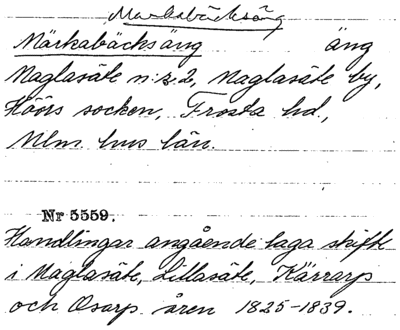 Markabäcksäng
Märkabäcksäng äng
Maglasäte n:r 2, Maglasäte by,
Höörs socken, Frosta hd,
Mlm hus län.
Nr 5559.
Handlingar angående laga skifte
i Maglasäte, Lillasäte, Kärrarp
och Osarp åren 1825-1839.